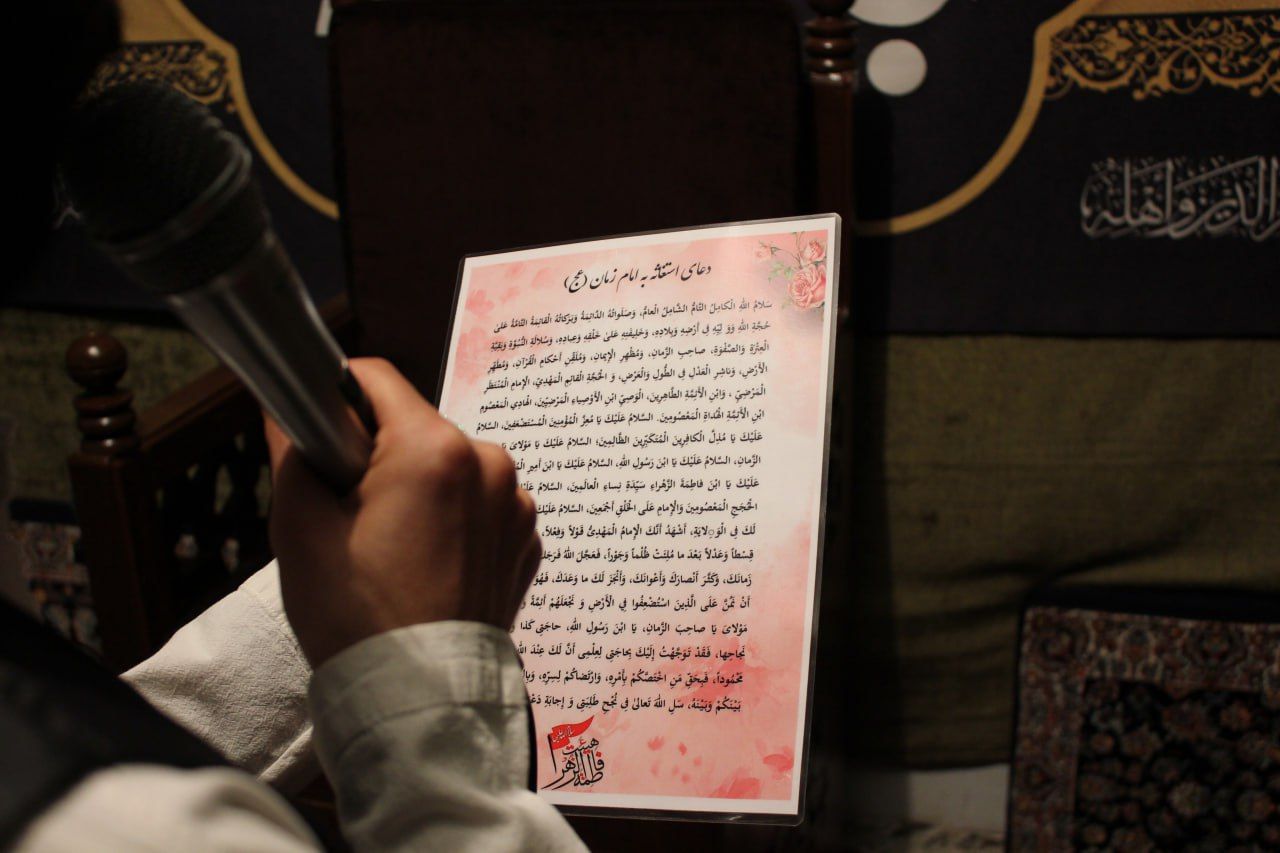 دعای استغاثه به امام زمان (عج)
سَلامُ اللهِ الْكامِلُ التّامُّ الشّامِلُ الْعامُّ، وَصَلَواتُهُ الدّائِمَةُ وَبَرَكاتُهُ الْقائِمَةُ التّامَّةُ عَلىٰ
حُجَّةِ اللهِ وَوَ لِيِّهِ فِى أَرْضِهِ وَبِلادِهِ، وَخَلِيفَتِهِ عَلىٰ خَلْقِهِ وَعِبادِهِ، وَسُلالَةِ النُّبُوَّةِ وَبَقِيَّةِ
الْعِتْرَةِ وَالصَّفْوَةِ، صاحِبِ الزَّمانِ، وَمُظْهِرِ الْإِيمانِ، وَمُلَقِّنِ أَحْكامِ الْقُرْآنِ، وَمُطَهِّرِ
الْأَرْضِ، وَناشِرِ الْعَدْلِ فِى الطُّولِ وَالْعَرْضِ، وَ الْحُجَّةِ الْقائِمِ الْمَهْدِيِّ، الْإِمامِ الْمُنْتَظَرِ
الْمَرْضِيِّ ، وَابْنِ الْأَئِمَّةِ الطّاهِرِينَ، الْوَصِيِّ ابْنِ الْأَوْصِياءِ الْمَرْضِيِّينَ، الْهادِي الْمَعْصُومِ
ابْنِ الْأَئِمَّةِ الْهُداةِ الْمَعْصُومِينَ. السَّلامُ عَلَيْكَ يَا مُعِزَّ الْمُؤْمِنِينَ الْمُسْتَضْعَفِينَ، السَّلامُ
عَلَيْكَ يَا مُذِلَّ الْكافِرِينَ الْمُتَكَبِّرِينَ الظّالِمِينَ؛ السَّلامُ عَلَيْكَ يَا مَوْلاىَ يَا
الزَّمانِ، السَّلامُ عَلَيْكَ يَا ابْنَ رَسُولِ اللهِ، السَّلامُ عَلَيْكَ يَا ابْنَ أَمِيرِ
عَلَيْكَ يَا ابْنَ فاطِمَةَ الزَّهْراءِ سَيِّدَةِ نِساءِ الْعالَمِينَ، السَّلامُ
الْحُجَجِ الْمَعْصُومِينَ وَالْإِمامِ عَلَى الْخَلْقِ أَجْمَعِينَ، السَّلامُ عَلَيْكَ
لَكَ فِى الْوَِلايَةِ، أَشْهَدُ أَنَّكَ الْإِمامُ الْمَهْدِىُّ قَوْلاً وَفِعْلاً،
قِسْطاً وَعَدْلاً بَعْدَ ما مُلِئَتْ ظُلْماً وَجَوْراً، فَعَجَّلَ اللهُ فَرَجَكَ
زَمانَكَ، وَكَثَّرَ أَنْصارَكَ وَأَعْوانَكَ، وَأَنْجَزَ لَكَ ما وَعَدَكَ، فَهُوَ
أَنْ نَمُنَّ عَلَى الَّذِينَ اسْتُضْعِفُوا فِي الْأَرْضِ وَ نَجْعَلَهُمْ أَئِمَّةً
مَوْلاىَ يَا صاحِبَ الزَّمانِ، يَا ابْنَ رَسُولِ اللهِ، حاجَتِى كَذا
نَجاحِها، فَقَدْ تَوَجَّهْتُ إِلَيْكَ بِحاجَتِى لِعِلْمِى أَنَّ لَكَ عِنْدَ
مَحْمُوداً، فَبِحَقِّ مَنِ اخْتَصَّكُمْ بِأَمْرِهِ، وَارْتَضاكُمْ لِسِرِّهِ،
بَيْنَكُمْ وَبَيْنَهُ، سَلِ اللهَ تَعالىٰ فِى نُجْحِ طَلِبَتِى وَ إِجابَةِ
هیئت
فاطمة الزهرا
الدین واهله